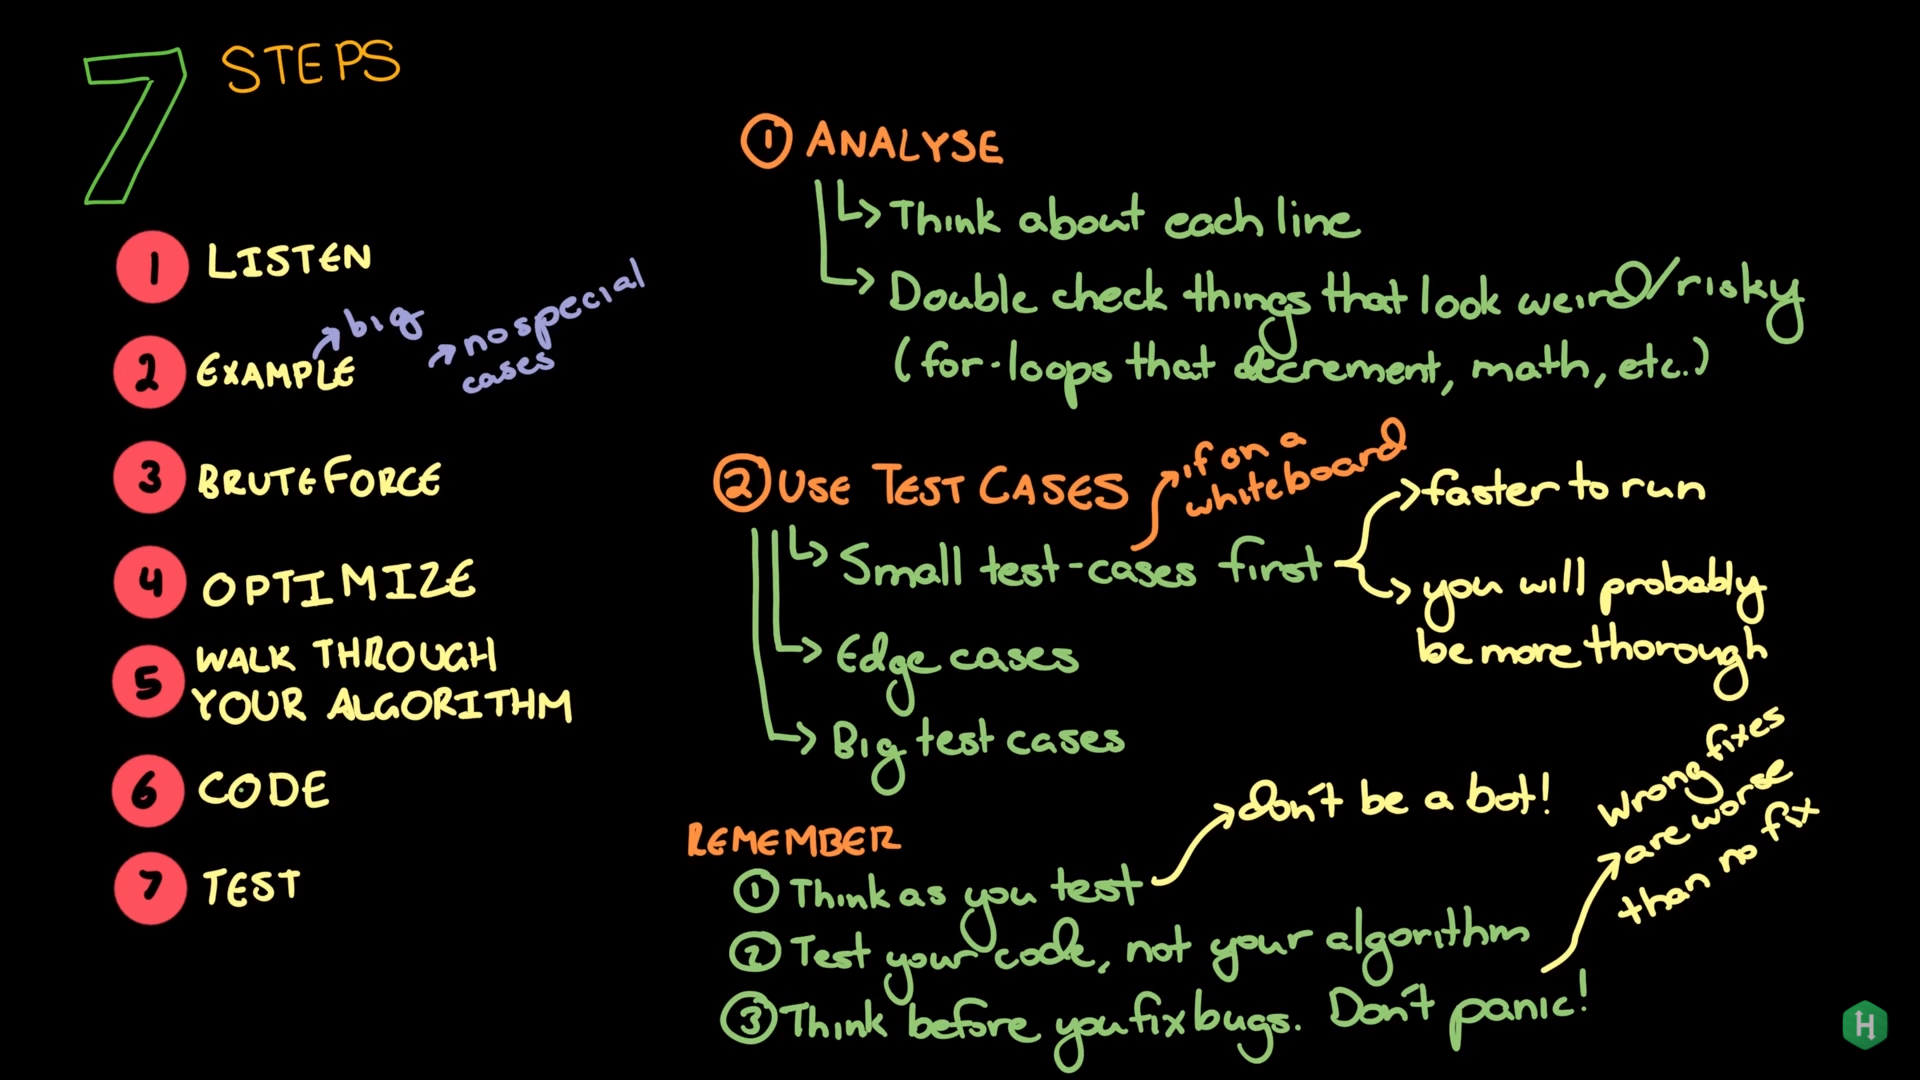 7 STEPS
1 LISTEN
2 EXAMPLE
big
no special
cases
3 BRUTE FORCE
4 OPTIMIZE
5 WALK THROUGH
YOUR ALGORITHM
6 CODE
7 TEST
1 ANALYSE
Think about each line
Double check things that look weird/risky
(for-loops that decrement, math, etc.)
2 USE TEST CASES
if on a
whiteboard
Small test-cases first
faster to run
you will probably
be more thorough
Edge cases
Big test cases
REMEMBER
1 Think as you test
don't be a bot!
2 Test your code, not your algorithm
3 Think before you fix bugs. Don't panic!
wrong fixes
are worse
than no fix
H